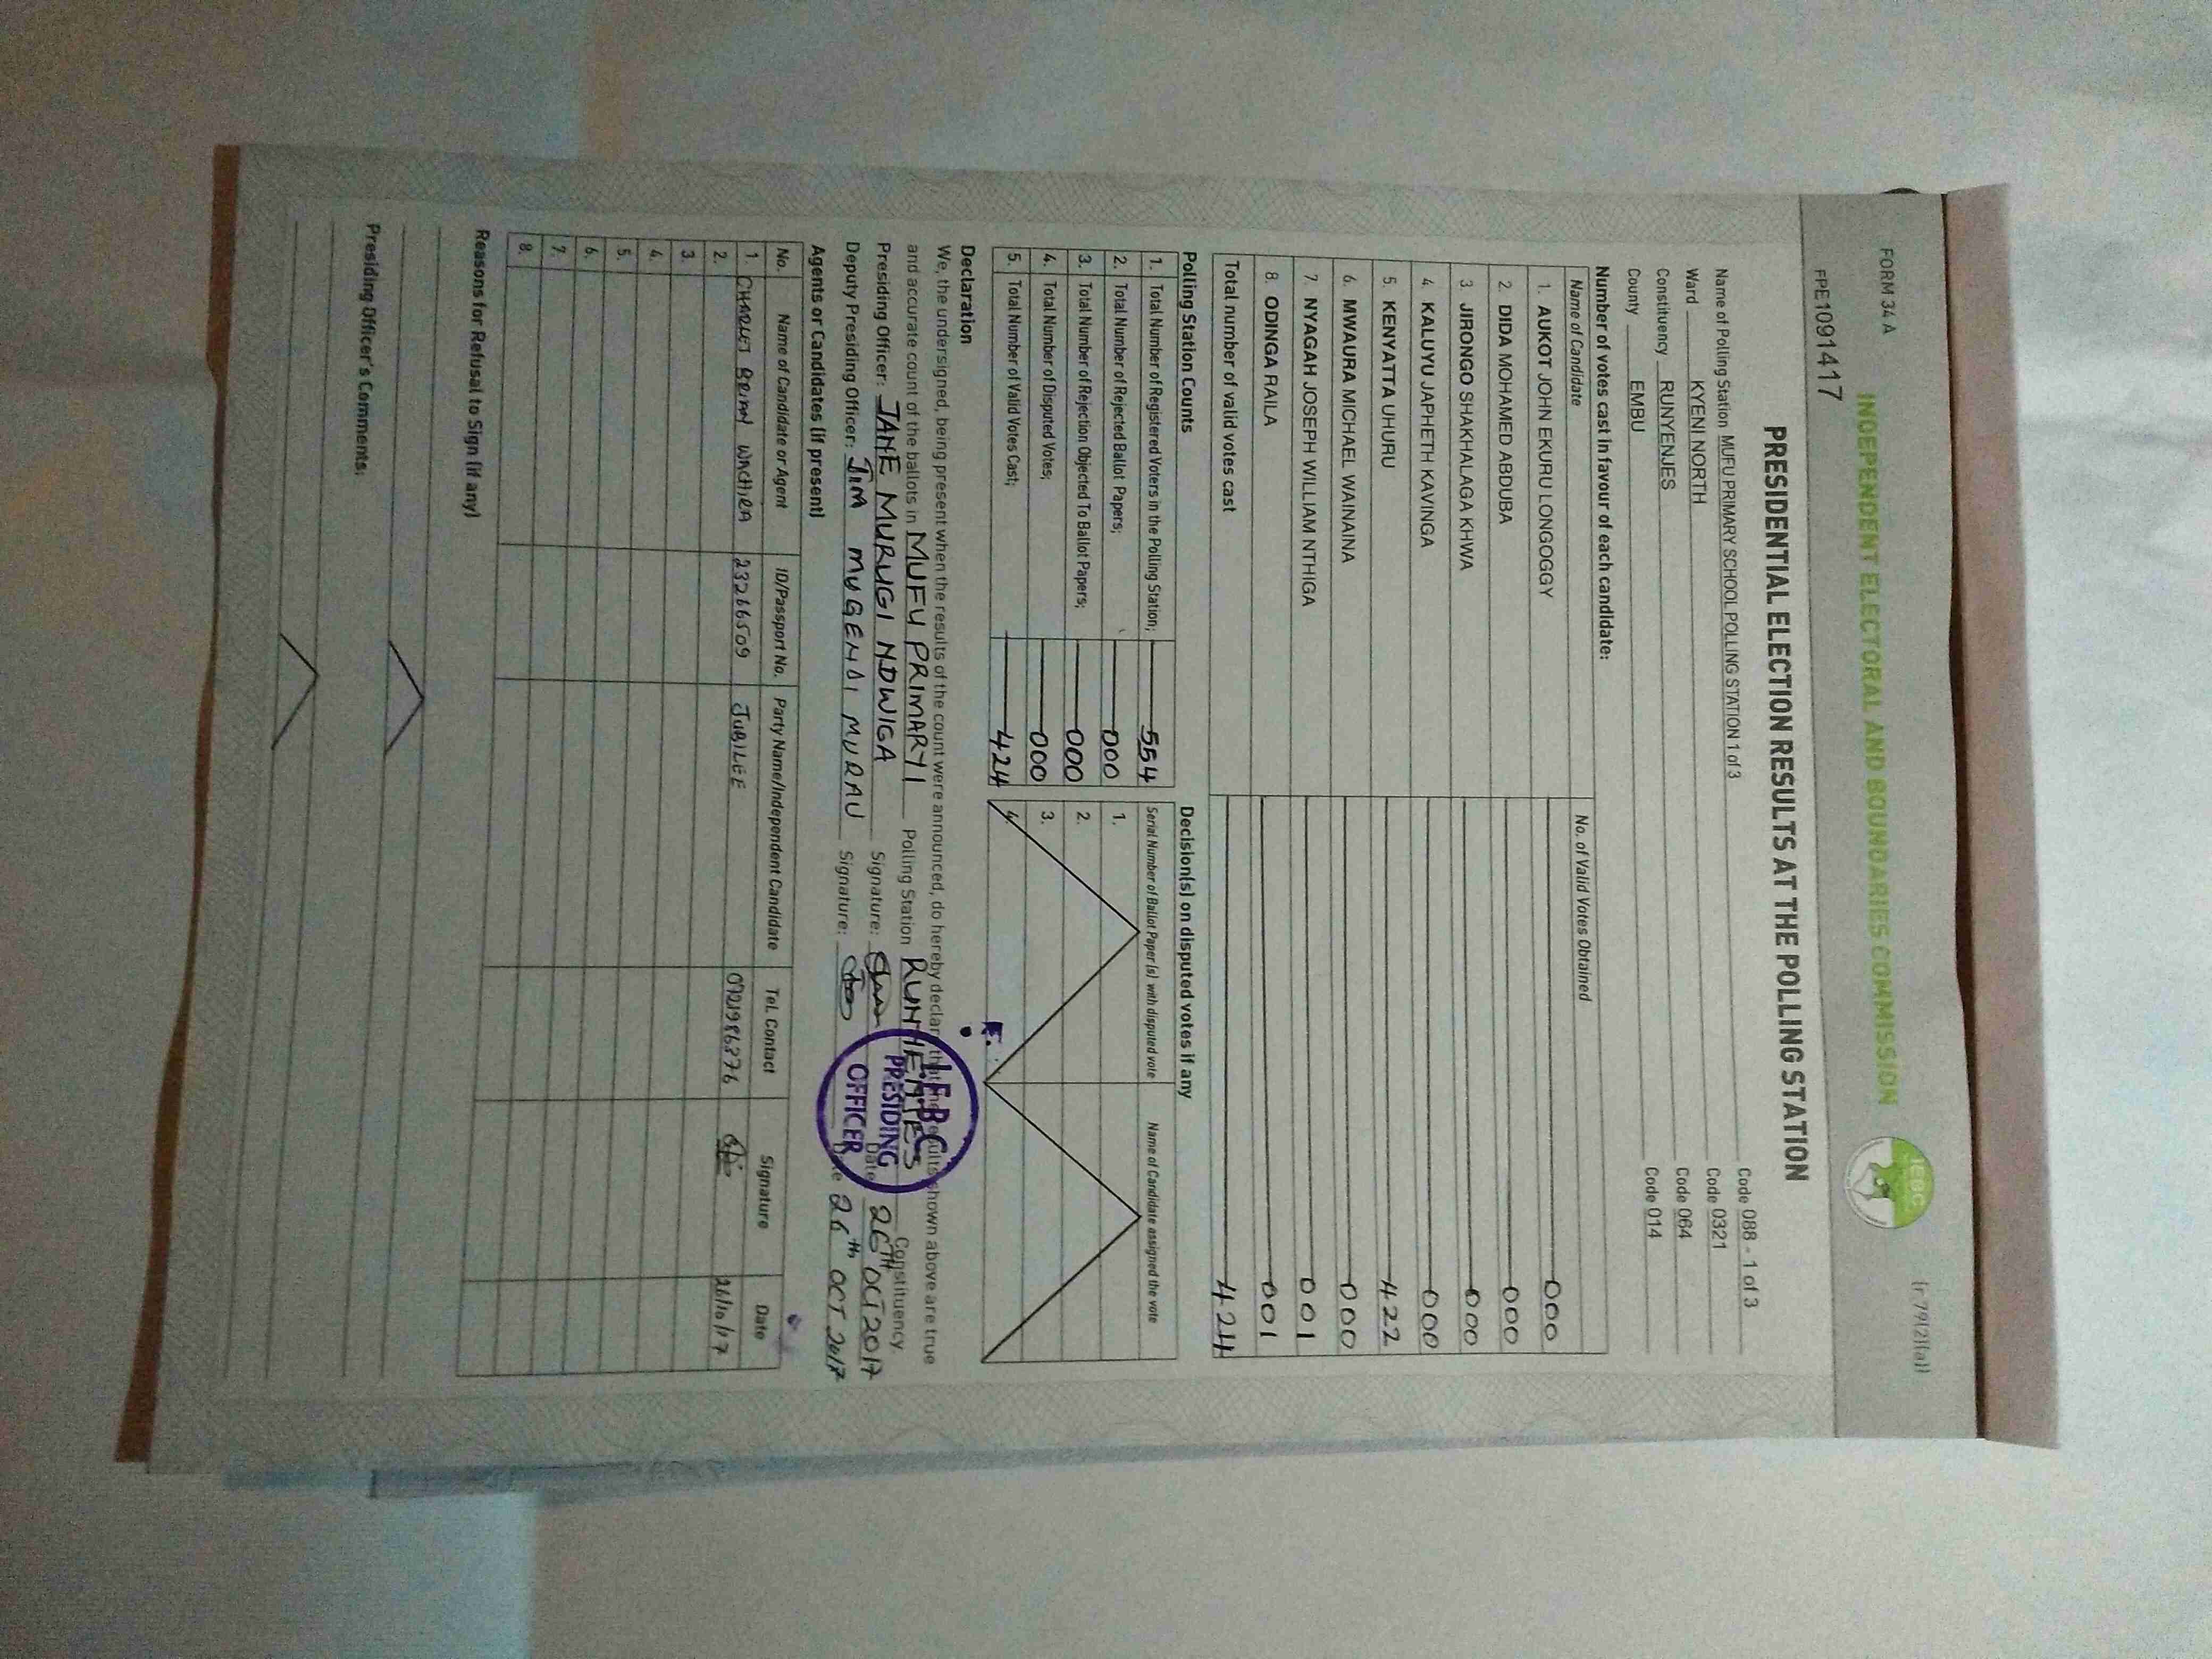 FORM 34 A
(r 79(2)(a))
INDEPENDENT ELECTORAL AND BOUNDARIES COMMISSION
IEBC
FPE1091417
PRESIDENTIAL ELECTION RESULTS AT THE POLLING STATION
Name of Polling Station MUFU PRIMARY SCHOOL POLLING STATION 1 of 3 Code 088 - 1 of 3
Ward KYENI NORTH Code 0321
Constituency RUNYENJES Code 064
County EMBU Code 014
Number of votes cast in favour of each candidate:
Name of Candidate No. of Valid Votes Obtained
1. AUKOT JOHN EKURU LONGOGGY 000
2. DIDA MOHAMED ABDUBA 000
3. JIRONGO SHAKHALAGA KHWA 000
4. KALUYU JAPHETH KAVINGA 000
5. KENYATTA UHURU 422
6. MWAURA MICHAEL WAINAINA 000
7. NYAGAH JOSEPH WILLIAM NTHIGA 001
8. ODINGA RAILA 001
Total number of valid votes cast 424
Polling Station Counts
1. Total Number of Registered Voters in the Polling Station; 554
2. Total Number of Rejected Ballot Papers; 000
3. Total Number of Rejection Objected To Ballot Papers; 000
4. Total Number of Disputed Votes; 000
5. Total Number of Valid Votes Cast; 424
Decision(s) on disputed votes if any
Serial Number of Ballot Paper (s) with disputed vote Name of Candidate assigned the vote
1.
2.
3.
4.
Declaration
We, the undersigned, being present when the results of the count were announced, do hereby declare that the results shown above are true
and accurate count of the ballots in MUFU PRIMARY 1 Polling Station Constituency
Presiding Officer: JANE MURUGI NDWIGA Signature: Date 26TH OCT 2017
Deputy Presiding Officer: JIM MUGENDI MURAU Signature: Date 26th OCT 2017
I.E.B.C
PRESIDING
OFFICER
Agents or Candidates (if present)
No. Name of Candidate or Agent ID/Passport No. Party Name/Independent Candidate Tel. Contact Signature Date
1. CHARLES BRIAN WACHIRA 23266509 JUBILEE 0721986376 26/10/17
2.
3.
4.
5.
6.
7.
8.
Reasons for Refusal to Sign (if any)
Presiding Officer's Comments;